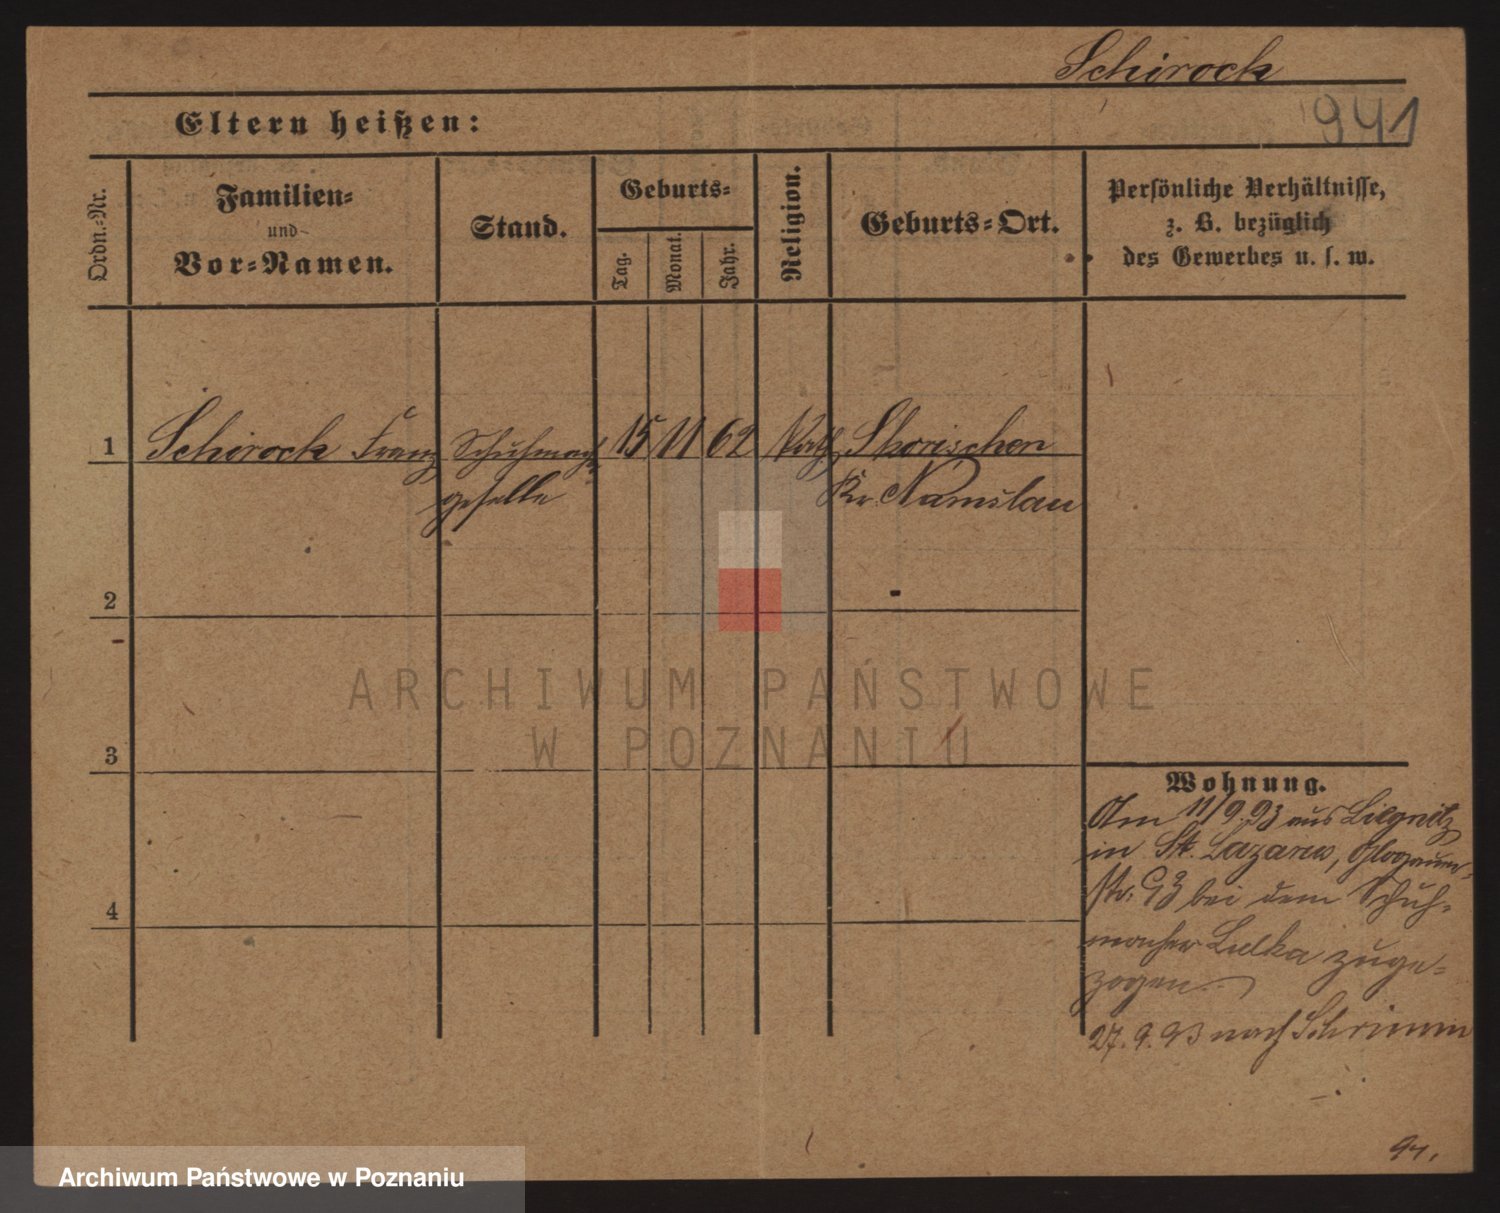 Schirock
941
Eltern heißen:
Ordn.-Nr.
Familien-
und
Vor-Namen.
Stand.
Geburts-
Tag.
Monat.
Jahr.
Religion.
Geburts-Ort.
Persönliche Verhältnisse,
z. B. bezüglich
des Gewerbes u. s. w.
1 Schirock Franz Schuhmach 15 11 62 Kath Skorischen
geselle Kr. Namslau
2
3
4
ARCHIWUM PAŃSTWOWE
W POZNANIU
Wohnung.
Am 11/9.93 aus Liegnitz
in St. Lazarus, Glogauer-
str. 93 bei dem Schuh-
macher Lulka zuge-
zogen.
27.9.93 nach Schrimm
Archiwum Państwowe w Poznaniu